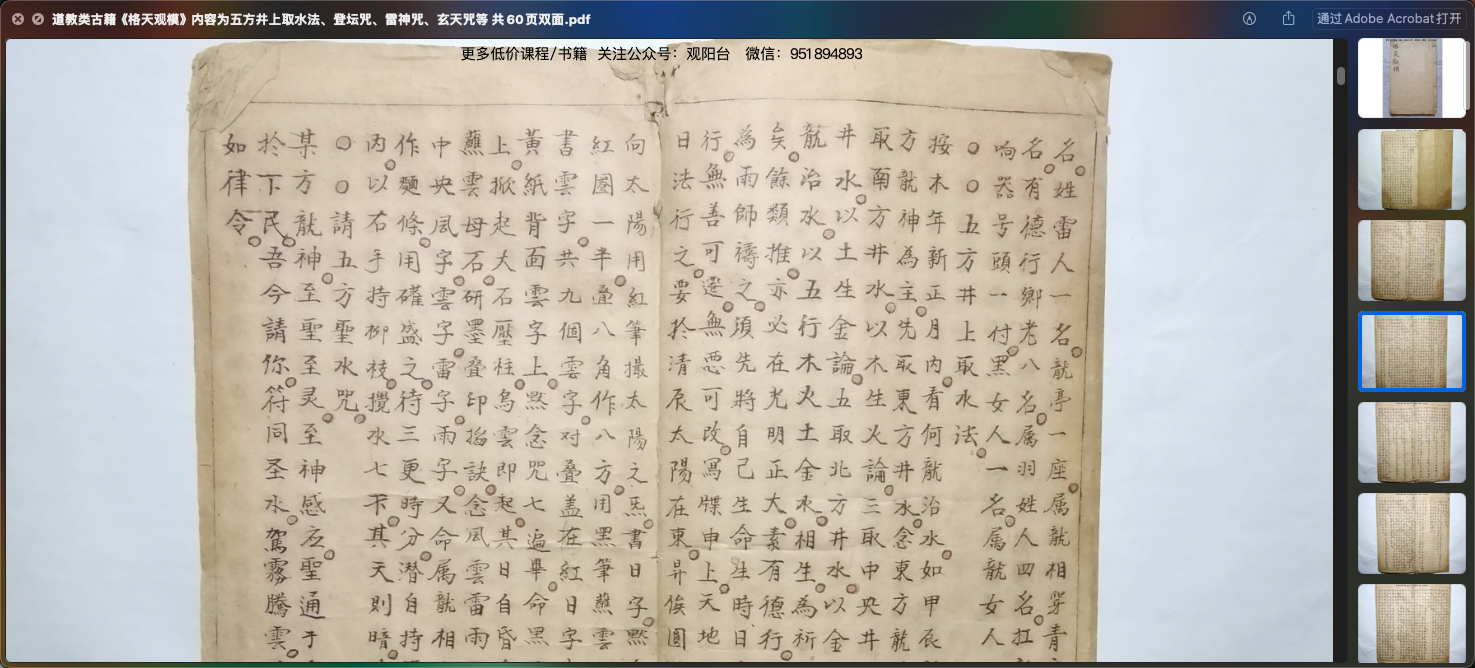 道教类古籍《格天观模》内容为五方井上取水法、登坛咒、雷神咒、玄天咒等 共60页双面.pdf
通过Adobe Acrobat打开
更多低价课程/书籍 关注公众号：观阳台 微信：951894893
名姓雷人一名龍亭一座属龍相穿青
名有德行鄉老八名属羽姓人四名扛
响器号頭一付黑女人一名属龍女人
○○五方井上取水法
按木年新正月內看何龍治水如甲辰
方龍神為主先取東方井水念東方龍
取南方井水以木生火論三取中央井
井水以土生金論五取北方井水以金
龍治水以五行木火土金水相生為祈
矣餘類推亦必在光明正大素有德行
為雨師禱之須先將自己生命生時日
行無善可遷無惡可改寫牒申上天地
日法行之要於清辰太陽在東昇俟圓
向太陽用紅筆撮太陽之炁書日字點
紅圈一半畫八角作八方用黑筆蘸雲
書雲字共九個雲字对疊盖在紅日字
黃紙背面雲字上點念咒七遍畢命黑
上掀起大石壓柱烏雲即起其日自昏
蘸雲母石研墨叠印掐訣念風雲雷雨
中央風字雲字雷字雨字又命属龍相
作麵條用礶盛之待三更時分潛自持
內以右手持柳枝攪水七下其天則暗
○○請五方聖水咒
某方龍神至聖至灵至神感应聖通于
於下民吾今請你符同圣水駕霧騰雲
如律令